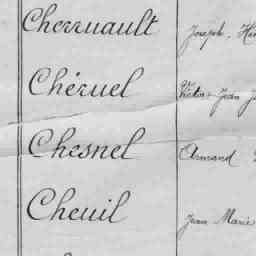 Cherruault Joseph, Hen
Chéruel Victor Jean J
Chesnel Armand
Cheuil Jean Marie